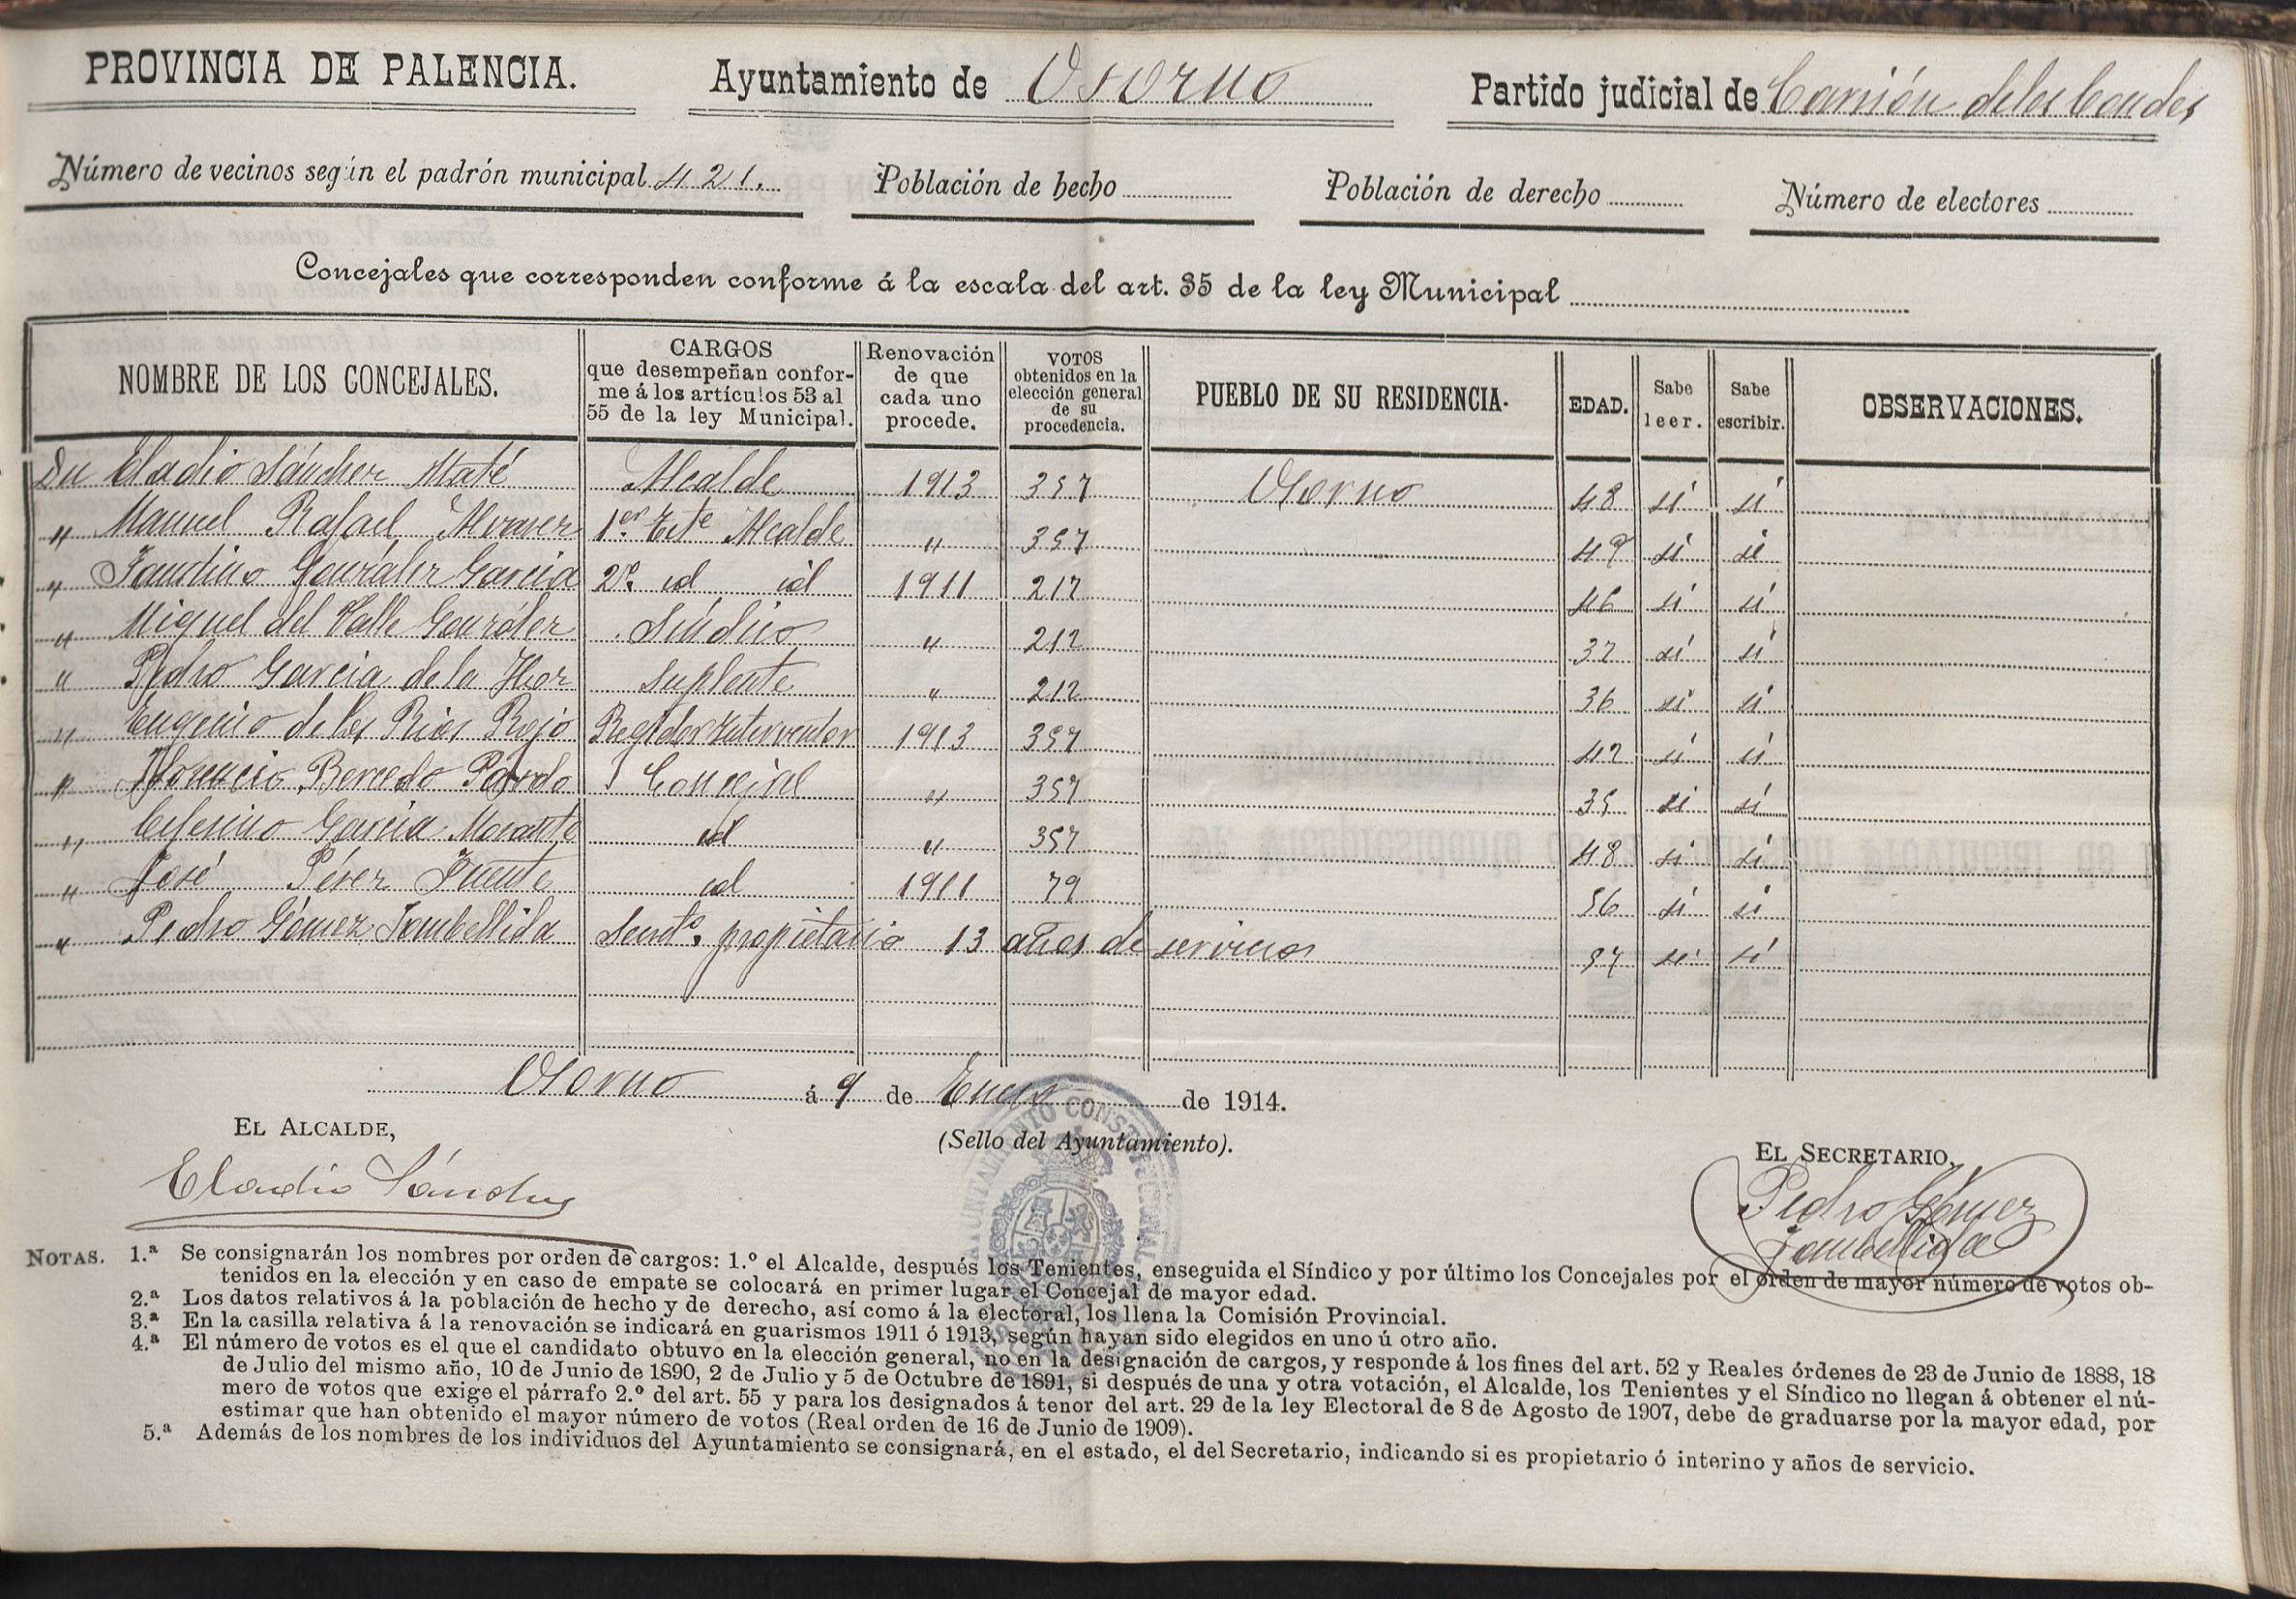 PROVINCIA DE PALENCIA. Ayuntamiento de Osorno Partido judicial de Carrión de los Condes
Número de vecinos según el padrón municipal 421. Población de hecho Población de derecho Número de electores
Concejales que corresponden conforme á la escala del art. 35 de la ley Municipal
NOMBRE DE LOS CONCEJALES. CARGOS que desempeñan conforme á los artículos 53 al 55 de la ley Municipal. Renovación de que cada uno procede. VOTOS obtenidos en la elección general de su procedencia. PUEBLO DE SU RESIDENCIA. EDAD. Sabe leer. Sabe escribir. OBSERVACIONES.
Dn Eladio Sánchez Maté Alcalde 1913 357 Osorno 48 si si
" Manuel Rafael Alvarez 1er Tete Alcalde " 357 49 si si
" Faustino González Garcia 2º id id 1911 217 46 si si
" Miguel del Valle González Síndico " 212 37 si si
" Pedro Garcia de la Hoz Suplente " 212 36 si si
" Eugenio de los Rios Rojo Regidor Interventor 1913 357 42 si si
" Florencio Bercedo Pardo Concejal " 357 35 si si
" Ceferino Garcia Morante id " 357 48 si si
" José Pérez Fuente id 1911 79 56 si si
" Pedro Gómez Fombellida Secretº propietario 13 años de servicios 37 si si
Osorno á 9 de Enero de 1914.
EL ALCALDE, (Sello del Ayuntamiento). EL SECRETARIO,
AYUNTAMIENTO CONSTITUCIONAL
Eladio Sánchez Pedro Gómez
Fombellida
NOTAS. 1.ª Se consignarán los nombres por orden de cargos: 1.º el Alcalde, después los Tenientes, enseguida el Síndico y por último los Concejales por el orden de mayor número de votos ob-
tenidos en la elección y en caso de empate se colocará en primer lugar el Concejal de mayor edad.
2.ª Los datos relativos á la población de hecho y de derecho, así como á la electoral, los llena la Comisión Provincial.
3.ª En la casilla relativa á la renovación se indicará en guarismos 1911 ó 1913, según hayan sido elegidos en uno ú otro año.
4.ª El número de votos es el que el candidato obtuvo en la elección general, no en la designación de cargos, y responde á los fines del art. 52 y Reales órdenes de 23 de Junio de 1888, 18
de Julio del mismo año, 10 de Junio de 1890, 2 de Julio y 5 de Octubre de 1891, si después de una y otra votación, el Alcalde, los Tenientes y el Síndico no llegan á obtener el nú-
mero de votos que exige el párrafo 2.º del art. 55 y para los designados á tenor del art. 29 de la ley Electoral de 8 de Agosto de 1907, debe de graduarse por la mayor edad, por
estimar que han obtenido el mayor número de votos (Real orden de 16 de Junio de 1909).
5.ª Además de los nombres de los individuos del Ayuntamiento se consignará, en el estado, el del Secretario, indicando si es propietario ó interino y años de servicio.